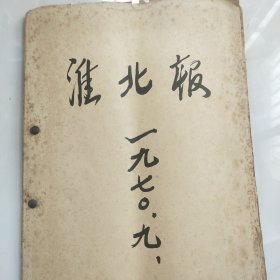 淮北報
一九七〇.九、